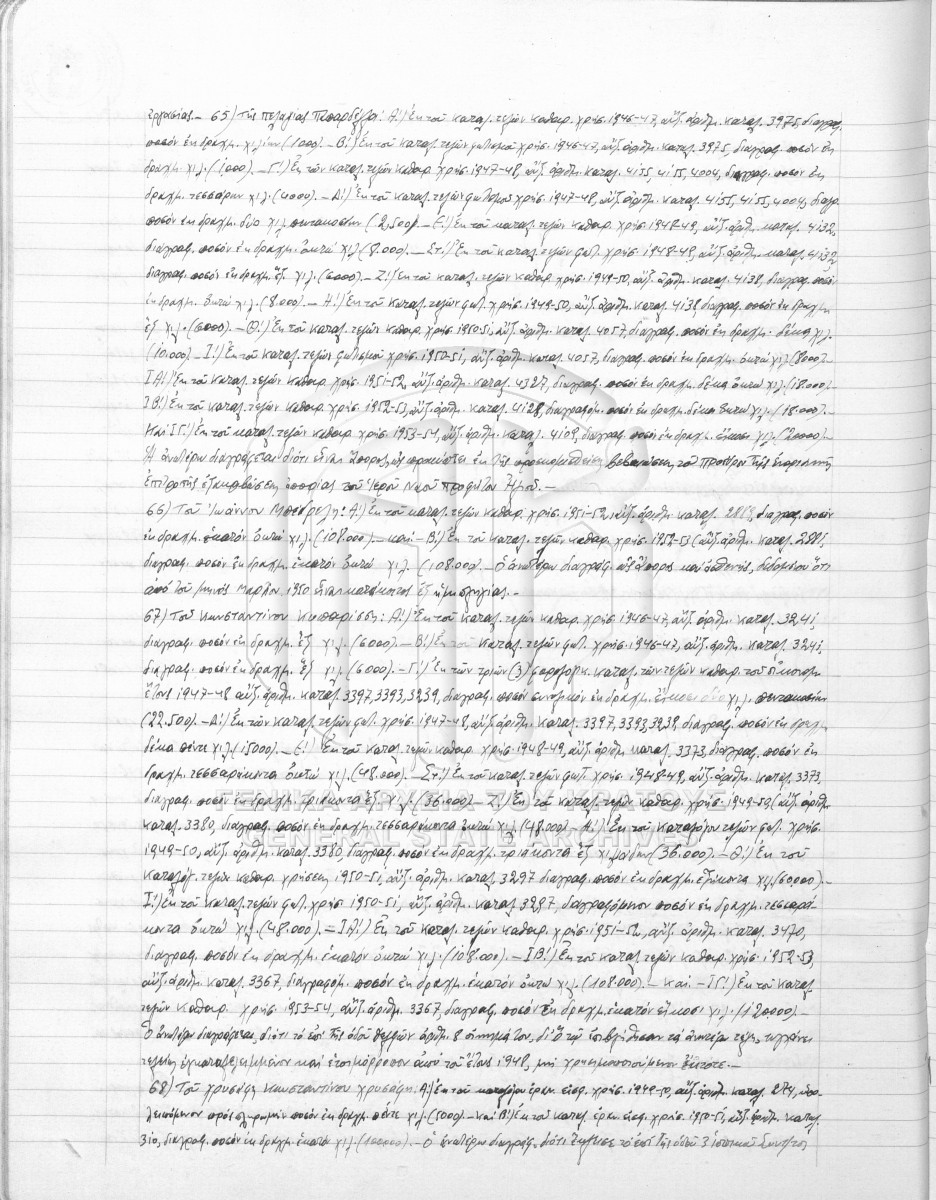 ἐργασίας.- 65) Τῆς Πελαγίας Πιπαρδέλη: Α!) Ἐκ τοῦ καταλ. τελῶν καθαρ. χρήσ. 1946-47, αὔξ. ἀριθμ. καταλ. 3975, διαγραφ.
ποσόν ἐκ δραχμ. χιλίων (1000) - Β!) Ἐκ τοῦ καταλ. τελῶν φωτισμοῦ χρήσ. 1946-47, αὔξ. ἀριθμ. καταλ. 3975, διαγραφ. ποσόν ἐκ
δραχμ. χιλ. (1000). - Γ!) Ἐκ τῶν καταλ. τελῶν καθαρ. χρήσ. 1947-48, αὔξ. ἀριθμ. καταλ. 4155, 4155, 4004, διαγραφ. ποσόν ἐκ
δραχμ. τεσσάρων χιλ. (4000). - Δ!) Ἐκ τοῦ καταλ. τελῶν φωτισμοῦ χρήσ. 1947-48, αὔξ. ἀριθμ. καταλ. 4155, 4155, 4004, διαγρ.
ποσόν ἐκ δραχμ. δύο χιλ. πεντακοσίων (2.500) - Ε!) Ἐκ τοῦ καταλ. τελῶν καθαρ. χρήσ. 1948-49, αὔξ. ἀριθμ. καταλ. 4132,
διαγραφ. ποσόν ἐκ δραχμ. ὀκτώ χιλ. (8.000). - Στ!) Ἐκ τοῦ καταλ. τελῶν φωτ. χρήσ. 1948-49, αὔξ. ἀριθμ. καταλ. 4132
διαγραφ. ποσόν ἐκ δραχμ. ἕξ χιλ. (6000) - Ζ!) Ἐκ τοῦ καταλ. τελῶν καθαρ. χρήσ. 1949-50, αὔξ. ἀριθμ. καταλ. 4138, διαγραφ. ποσόν
ἐκ δραχμ. ὀκτώ χιλ. (8.000) - Η!) Ἐκ τοῦ καταλ. τελῶν φωτ. χρήσ. 1949-50, αὔξ. ἀριθμ. καταλ. 4138, διαγραφ. ποσόν ἐκ δραχμ.
ἕξ χιλ. (6000) - Θ!) Ἐκ τοῦ καταλ. τελῶν καθαρ. χρήσ. 1950-51, αὔξ. ἀριθμ. καταλ. 4057, διαγραφ. ποσόν ἐκ δραχμ. δέκα χιλ.
(10.000) - Ι!) Ἐκ τοῦ καταλ. τελῶν φωτισμοῦ χρήσ. 1950-51, αὔξ. ἀριθμ. καταλ. 4057, διαγραφ. ποσόν ἐκ δραχμ. ὀκτώ χιλ. (8000) -
ΙΑ!) Ἐκ τοῦ καταλ. τελῶν καθαρ. χρήσ. 1951-52, αὔξ. ἀριθμ. καταλ. 4327, διαγραφ. ποσόν ἐκ δραχμ. δέκα ὀκτώ χιλ. (18.000)
ΙΒ!) Ἐκ τοῦ καταλ. τελῶν καθαρ. χρήσ. 1952-53, αὔξ. ἀριθμ. καταλ. 4128, διαγραφόμ. ποσόν ἐκ δραχμ. δέκα ὀκτώ χιλ. (18.000). -
Καί ΙΓ!) Ἐκ τοῦ καταλ. τελῶν καθαρ. χρήσ. 1953-54, αὔξ. ἀριθμ. καταλ. 4109, διαγραφ. ποσόν ἐκ δραχμ. εἴκοσι χιλ. (20000) -
Αἱ ἀνωτέρω διαγράφεται διότι εἶναι ἄπορος, ὡς προκύπτει ἐκ τῆς βεβαιώσεως τοῦ Προέδρου τῆς
ἐπιτροπῆς ἐξακριβώσεως ἀπορίας τοῦ Ἱεροῦ Ναοῦ Προφήτου Ἠλιού. -
66) Τοῦ Ἰωάννου : Α!) Ἐκ τοῦ καταλ. τελῶν καθαρ. χρήσ. 1951-52, αὔξ. ἀριθμ. καταλ. διαγραφ. ποσόν
ἐκ δραχμ. ἑκατόν ὀκτώ χιλ. (108.000). - καί - Β!) Ἐκ τοῦ καταλ. τελῶν καθαρ. χρήσ. 1952-53 (αὔξ. ἀριθμ. καταλ.
διαγραφ. ποσόν ἐκ δραχμ. ἑκατόν ὀκτώ χιλ. (108.000) - Ὁ ἀνωτέρω διαγράφ. ὡς ἄπορος καί ἀσθενής, δεδομένου ὅτι
ἀπό τοῦ μηνός Μαρτίου 1950 εἶναι κατάκοιτος ἐξ ἡμιπληγίας. -
67) Τοῦ Κωνσταντίνου Κυπαρίσση: Α!) Ἐκ τοῦ καταλ. τελῶν καθαρ. χρήσ. 1946-47, αὔξ. ἀριθμ. καταλ. 3241,
διαγραφ. ποσόν ἐκ δραχμ. ἕξ χιλ. (6000) - Β!) Ἐκ τοῦ καταλ. τελῶν φωτ. χρήσ. 1946-47, αὔξ. ἀριθμ. καταλ. 3241,
διαγραφ. ποσόν ἐκ δραχμ. ἕξ χιλ. (6000) - Γ!) Ἐκ τῶν τριῶν (3) καταλ. τῶν τελῶν καθαρ. τοῦ οἰκονομ.
ἔτους 1947-48 αὔξ. ἀριθμ. καταλ. 3397, 3393, 3239, διαγραφ. ποσόν συνολικόν ἐκ δραχμ. εἴκοσι δύο χιλ. πεντακοσίων
(22.500) - Δ!) Ἐκ τῶν καταλ. τελῶν φωτ. χρήσ. 1947-48, αὔξ. ἀριθμ. καταλ. 3397, 3393, 3239, διαγραφ. ποσόν ἐκ δραχμ.
δέκα πέντε χιλ. (15000). - Ε!) Ἐκ τοῦ καταλ. τελῶν καθαρ. χρήσ. 1948-49, αὔξ. ἀριθμ. καταλ. 3373, διαγραφ. ποσόν ἐκ
δραχμ. τεσσαράκοντα ὀκτώ χιλ. (48.000). - Στ!) Ἐκ τοῦ καταλ. τελῶν φωτ. χρήσ. 1948-49, αὔξ. ἀριθμ. καταλ. 3373
διαγραφ. ποσόν ἐκ δραχμ. τριάκοντα ἕξ χιλ. (36.000) - Ζ!) Ἐκ τοῦ καταλ. τελῶν καθαρ. χρήσ. 1949-50 (αὔξ. ἀριθμ.
καταλ. 3380, διαγραφ. ποσόν ἐκ δραχμ. τεσσαράκοντα ὀκτώ χιλ. (48.000) - Η!) Ἐκ τοῦ καταλόγου τελῶν φωτ. χρήσ.
1949-50, αὔξ. ἀριθμ. καταλ. 3380 διαγραφ. ποσόν ἐκ δραχμ. τριάκοντα ἕξ χιλιάδων (36.000). - Θ!) Ἐκ τοῦ
καταλόγ. τελῶν καθαρ. χρήσεως 1950-51, αὔξ. ἀριθμ. καταλ. 3297 διαγραφ. ποσόν ἐκ δραχμ. ἑξήκοντα χιλ. (60000) -
Ι!) Ἐκ τοῦ καταλ. τελῶν φωτ. χρήσ. 1950-51, αὔξ. ἀριθμ. καταλ. 3297, διαγραφόμενον ποσόν ἐκ δραχμ. τεσσαρά-
κοντα ὀκτώ χιλ. (48.000). - ΙΑ!) Ἐκ τοῦ καταλ. τελῶν καθαρ. χρήσ. 1951-52, αὔξ. ἀριθμ. καταλ. 3470,
διαγραφ. ποσόν ἐκ δραχμ. ἑκατόν ὀκτώ χιλ. (108.000). - ΙΒ!) Ἐκ τοῦ καταλ. τελῶν καθαρ. χρήσ. 1952-53,
αὔξ. ἀριθμ. καταλ. 3367, διαγραφόμ. ποσόν ἐκ δραχμ. ἑκατόν ὀκτώ χιλ. (108.000). - καί - ΙΓ!) Ἐκ τοῦ καταλ.
τελῶν καθαρ. χρήσ. 1953-54, αὔξ. ἀριθμ. 3367, διαγραφ. ποσόν ἐκ δραχμ. ἑκατόν εἴκοσι χιλ. (120000) -
Ὁ ἀνωτέρω διαγράφεται, διότι τό ἐπί τῆς ὁδοῦ Δελφῶν ἀριθμ. 8 οἴκημά του, δι' ὅ τῷ ἐπεβλήθησαν τά ἀνωτέρω τέλη, τυγχάνει
τελείως ἐγκαταλελειμμένον καί ἑτοιμόρροπον ἀπό τοῦ ἔτους 1948, μή χρησιμοποιούμενον ἔκτοτε. -
68) Τοῦ Χρυσάφη Κωνσταντίνου Χρυσάφη: Α!) Ἐκ τοῦ καταλόγου ἐρασ. εἰσφ. χρήσ. 1949-50, αὔξ. ἀριθμ. καταλ. 274, ὑπο-
λειπόμενον πρός πληρωμήν ποσόν ἐκ δραχμ. πέντε χιλ. (5000) - καί Β!) Ἐκ τοῦ καταλ. ἐρασ. εἰσφ. χρήσ. 1950-51, αὔξ. ἀριθμ. καταλ.
310, διαγραφ. ποσόν ἐκ δραχμ. ἑκατόν χιλ. (100000). - Ὁ ἀνωτέρω διαγράφ. διότι ἔκλεισε τό ἐπί τῆς ὁδοῦ
ΓΕΝΙΚΑ ΑΡΧΕΙΑ ΤΟΥ ΚΡΑΤΟΥΣ
GENERAL STATE ARCHIVES